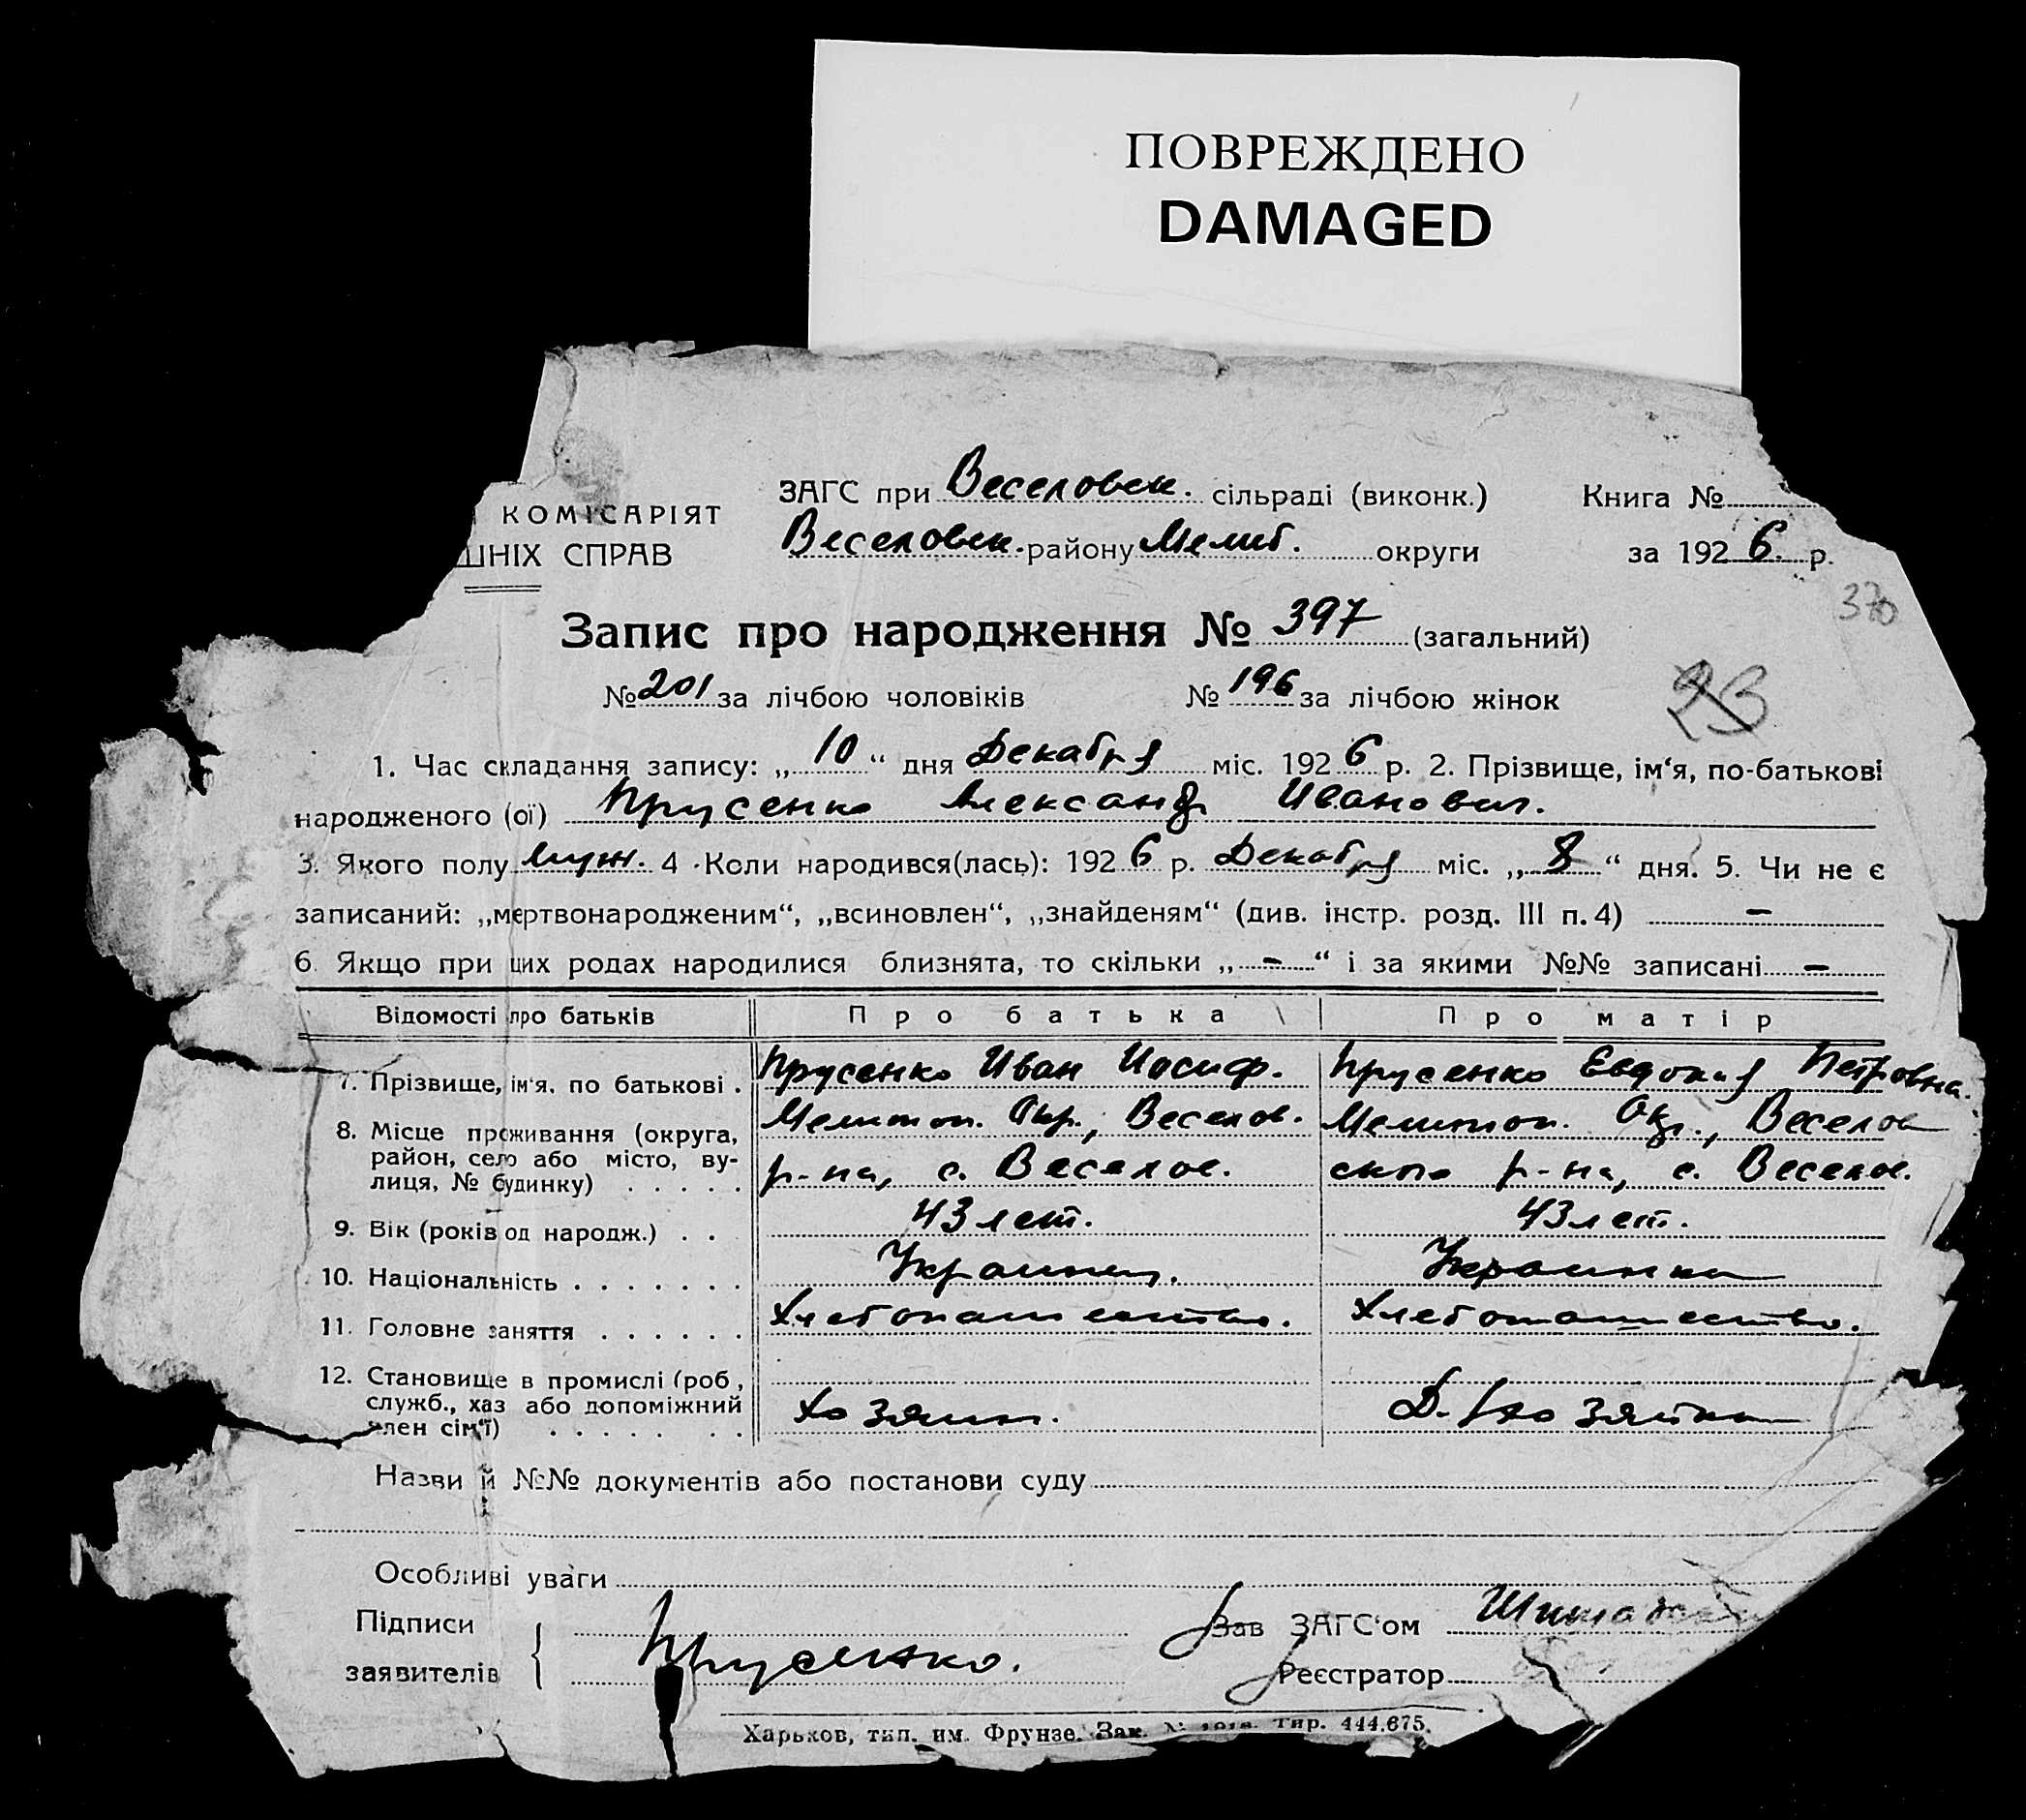 ПОВРЕЖДЕНО
DAMAGED
ЗАГС при Веселовск. сільраді (виконк.) Книга №
КОМІСАРІЯТ
Веселовск. району Мелит. округи за 1926 р.
ШНІХ СПРАВ
370
Запис про народження № 397 (загальний)
№ 201 за лічбою чоловіків № 196 за лічбою жінок
23
1. Час складання запису: „10“ дня Декабря міс. 1926 р. 2. Прізвище, ім‘я, по-батькові
народженого (ої) Прусенко Александр Иванович.
3. Якого полу муж. 4. Коли народився(лась): 1926 р. Декабря міс. „8“ дня. 5. Чи не є
записаний: „мертвонародженим“, „всиновлен“, „знайденям“ (див. інстр. розд. III п. 4) —
6. Якщо при цих родах народилися близнята, то скільки „—“ і за якими №№ записані —
Відомості про батьків Про батька Про матір
7. Прізвище, ім‘я, по батькові . Прусенко Иван Иосиф. Прусенко Евдокия Петровна.
8. Місце проживання (округа, Мелитоп. Окр., Веселов. Мелитоп. Окр., Веселов
район, село або місто, ву-
лиця, № будинку) . . . . . р-на, с. Веселое. ского р-на, с. Веселое.
9. Вік (років од народж.) . . 43 лет. 43 лет.
10. Національність . . . . . . . Украинец. Украинка
11. Головне заняття . . . . . . Хлебопашество. Хлебопашество.
12. Становище в промислі (роб,
служб., хаз або допоміжний Хозяин. Д. Хозяйка
член сім‘ї) . . . . . . .
Назви й №№ документів або постанови суду
Особливі уваги
Підписи Зав ЗАГС‘ом
заявителів Прусенко. Реєстратор
Харьков, тип. им. Фрунзе. Зак. № тир. 444.675.